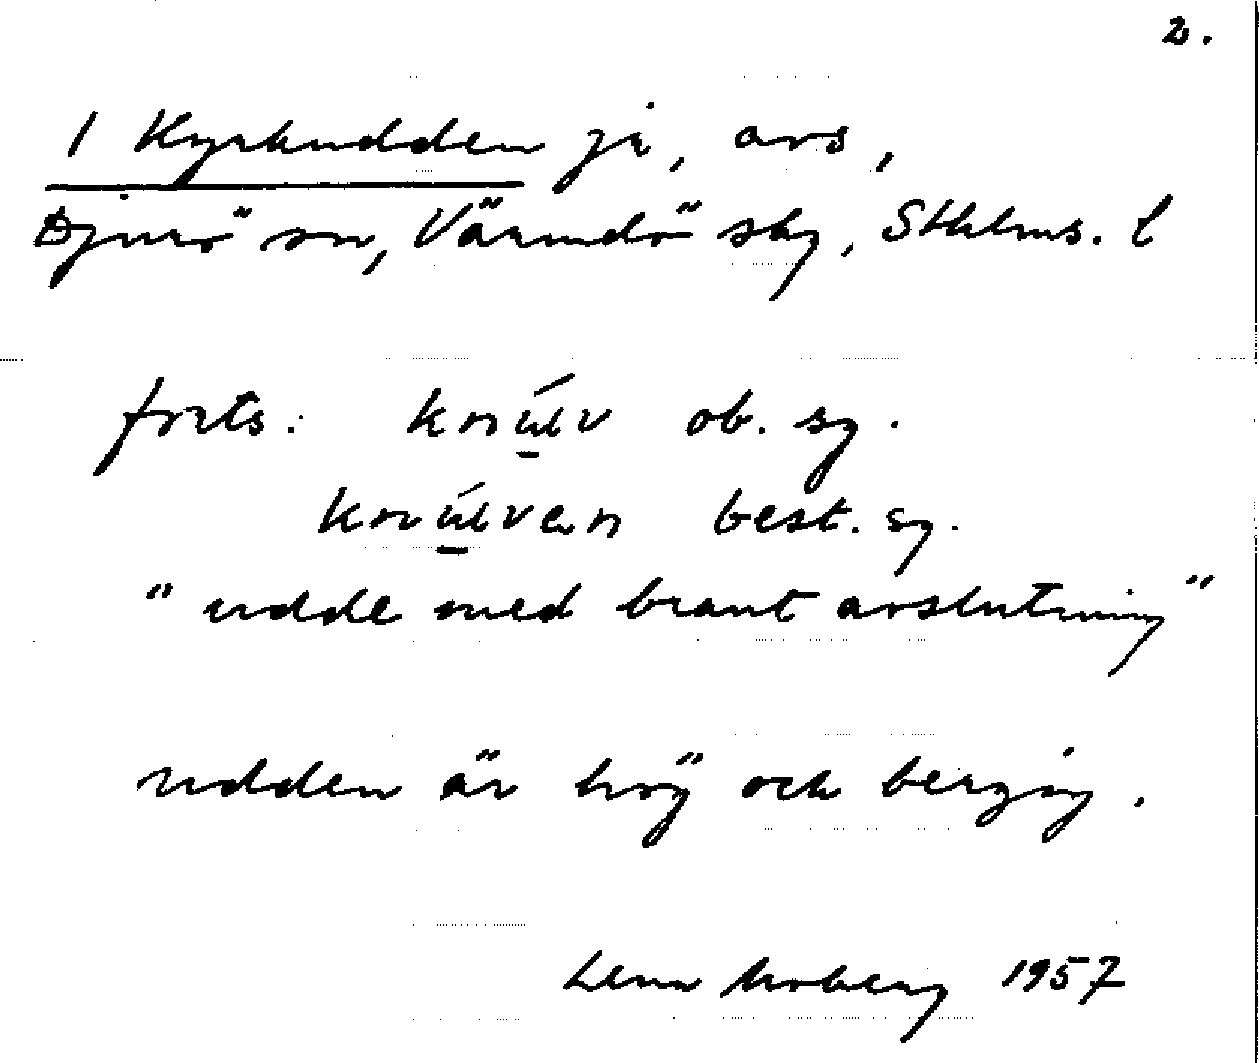 2.
1 Kyrkudden ja, avs,
Djurö sn, Värmdö skg, Sthlms. l
forts: knúlv ob. sg.
knúlven best. sg.
"udde med brant avslutning"
udden är hög och bergig.
Lena Moberg 1957